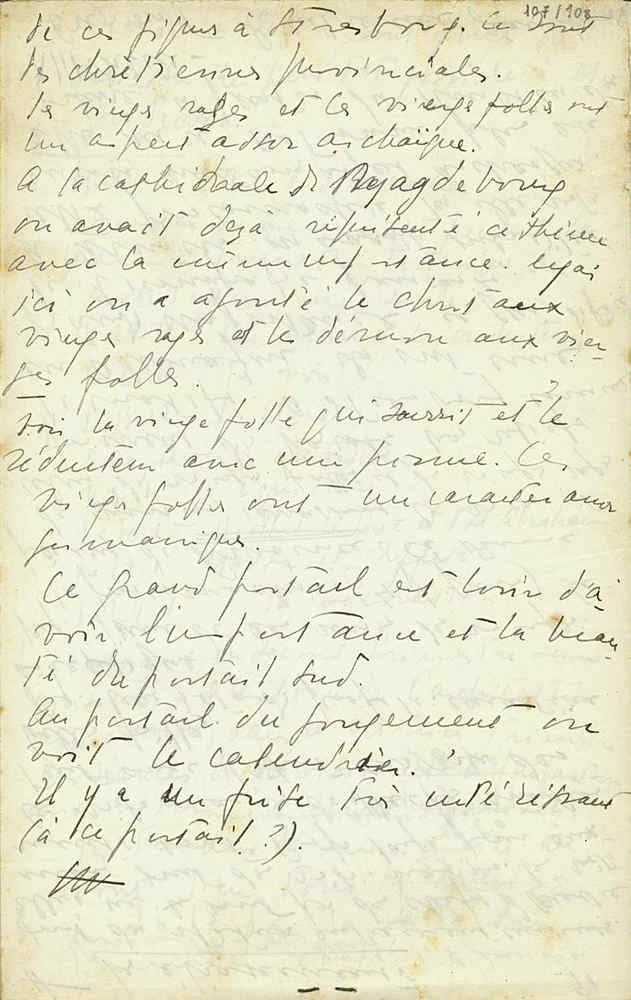 107/108
de ces figures à Strasbourg. Ce sont
des chrétiennes provinciales.
Les vierges sages et les vierges folles ont
un aspect assez archaïque.
A la cathédrale de Magdebourg
on avait déjà représenté ce thème
avec la même importance. Mais
ici on a ajouté le Christ aux
vierges sages et le démon aux vier-
ges folles.
Voir la vierge folle qui sourit et le
séducteur avec une pomme. Ces
vierges folles ont un caractère assez
germanique.
Ce grand portail est loin d'a-
voir l'importance et la beau-
té du portail sud.
Au portail du jugement on
voit le calendrier.
Il y a une frise très intéressante
(à ce portail ?).